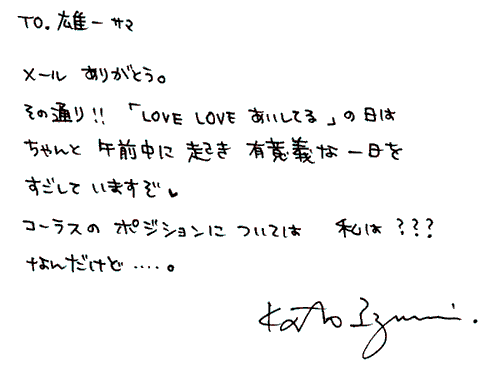 TO. 雄一 サマ
メール ありがとう。
その通り!! 「LOVE LOVE あいしてる」の日は
ちゃんと 午前中に 起き 有意義な 一日を
すごして いますぞ♥
コーラスの ポジションに ついては 私は ???
なんだけど ‥‥。
Kato Izumi.